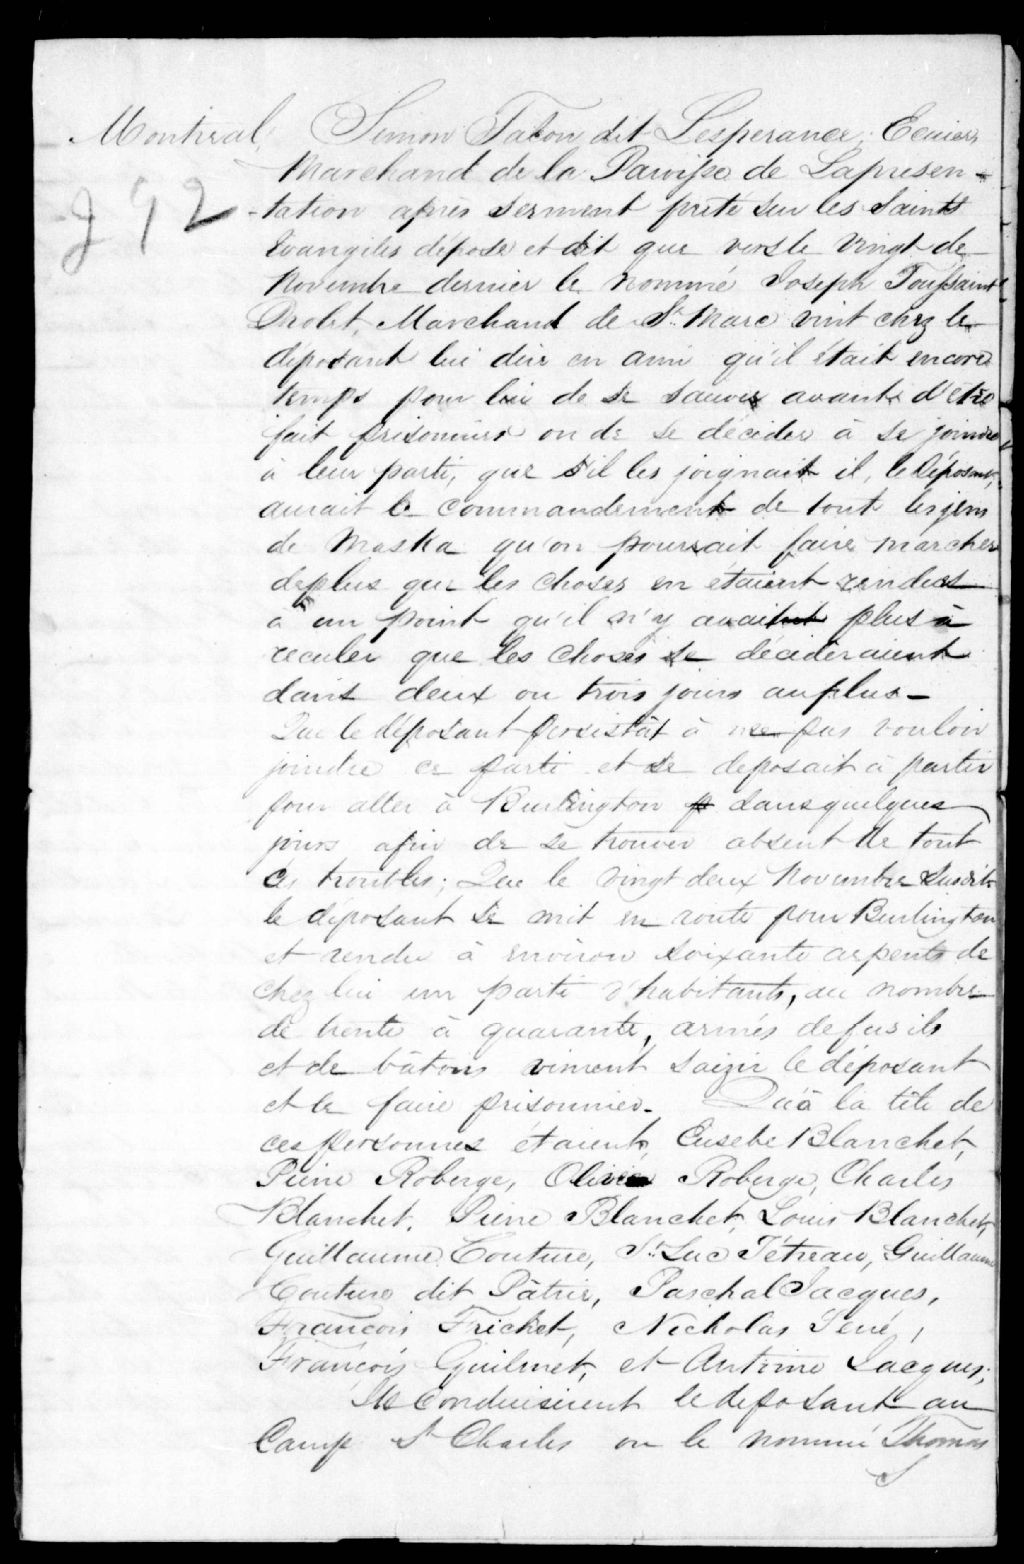 Montreal, Simon Talon dit Lesperance, Ecuier,
Marchand de la Paroisse de Lapresen-
J 92 -tation après serment prêté sur les Saints
Evangiles dépose et dit que vers le vingt de
Novembre dernier le nommé Joseph Toussaint
Drolet, Marchand de St. Marc vint chez le
déposant lui dire en ami qu'il était encore
temps pour lui de se sauver avant d'être
fait prisonnier ou de se décider à se joindre
à leur parti, que s'il les joignait il, le Déposant,
aurait le commandement de tout les jens
de Maska qu'on pourrait faire marcher
deplus que les choses en étaient rendues
a un point qu'il n'y avait plus à
reculer que les choses se décideraient
dans deux ou trois jours au plus -
Que le déposant persistât à ne pas vouloir
joindre ce parti et se deposait à partir
pour aller à Burlington dans quelques
jours afin de se trouver absent de tout
ces troubles; Que le vingt deux Novembre susdit
le déposant se mit en route pour Burlington
et rendu à environ soixante arpents de
chez lui un parti d'habitants, au nombre
de trente à quarante, armés de fusils
et de bâtons vinrent saizir le déposant
et le faire prisonnier. Qu'à la tête de
ces personnes étaient, Eusebe Blanchet,
Pierre Roberge, Olivier Roberge, Charles
Blanchet, Pierre Blanchet, Louis Blanchet,
Guillaume Couture, St. Luc Tétreau, Guillaume
Couture dit Pâtrie, Paschal Jacques,
François Frichet, Nicholas Séné,
François Guilmet, et Antoine Jacques;
Ils conduisirent le deposant au
Camp St Charles ou le nommé Thomas
S